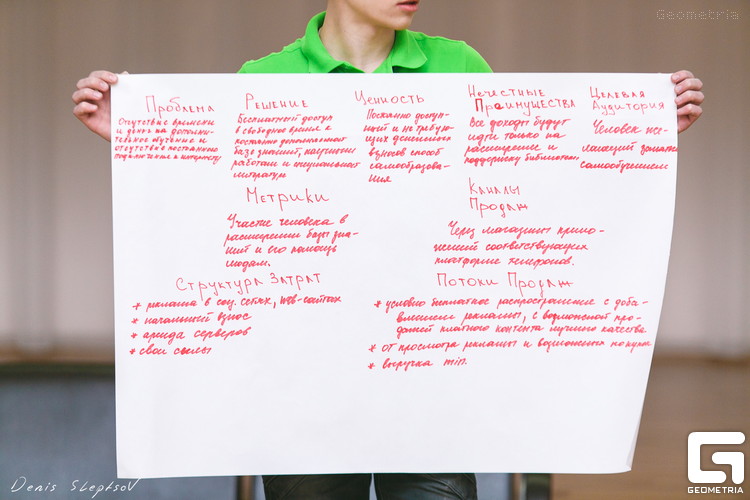 Geometria
Проблема
Отсутствие времени
и денег на дополни-
тельное обучение и
отсутствие постоянного
подключения к интернету
Решение
Бесплатный доступ
в свободное время к
постоянно дополняемой
базе знаний, научным
работам и специальной
литературе
Ценность
доступ-
ный и не требую-
щих денежных
взносов способ
самообразова-
ния
Нечестные
Преимущества
Все доходы будут
идти только на
расширение и
поддержку библиотеки
Целевая
Аудитория
Человек же-
лающий заняться
самообучением
Метрики
Участие человека в
расширении базы зна-
ний и его помощь
людям.
Каналы
Продаж
Через магазины прило-
жений соответствующих
платформе телефонов.
Структура Затрат
* реклама в соц. сетях, WEB-сайтах
* начальный взнос
* аренда серверов
* свои силы
Потоки Продаж
* условно бесплатное распространение с доба-
влением рекламы, с возможной про-
дажей платного контента лучшего качества
* от просмотра рекламы и возможных покупок
* выручка min.
Denis Sleptsov
GEOMETRIA